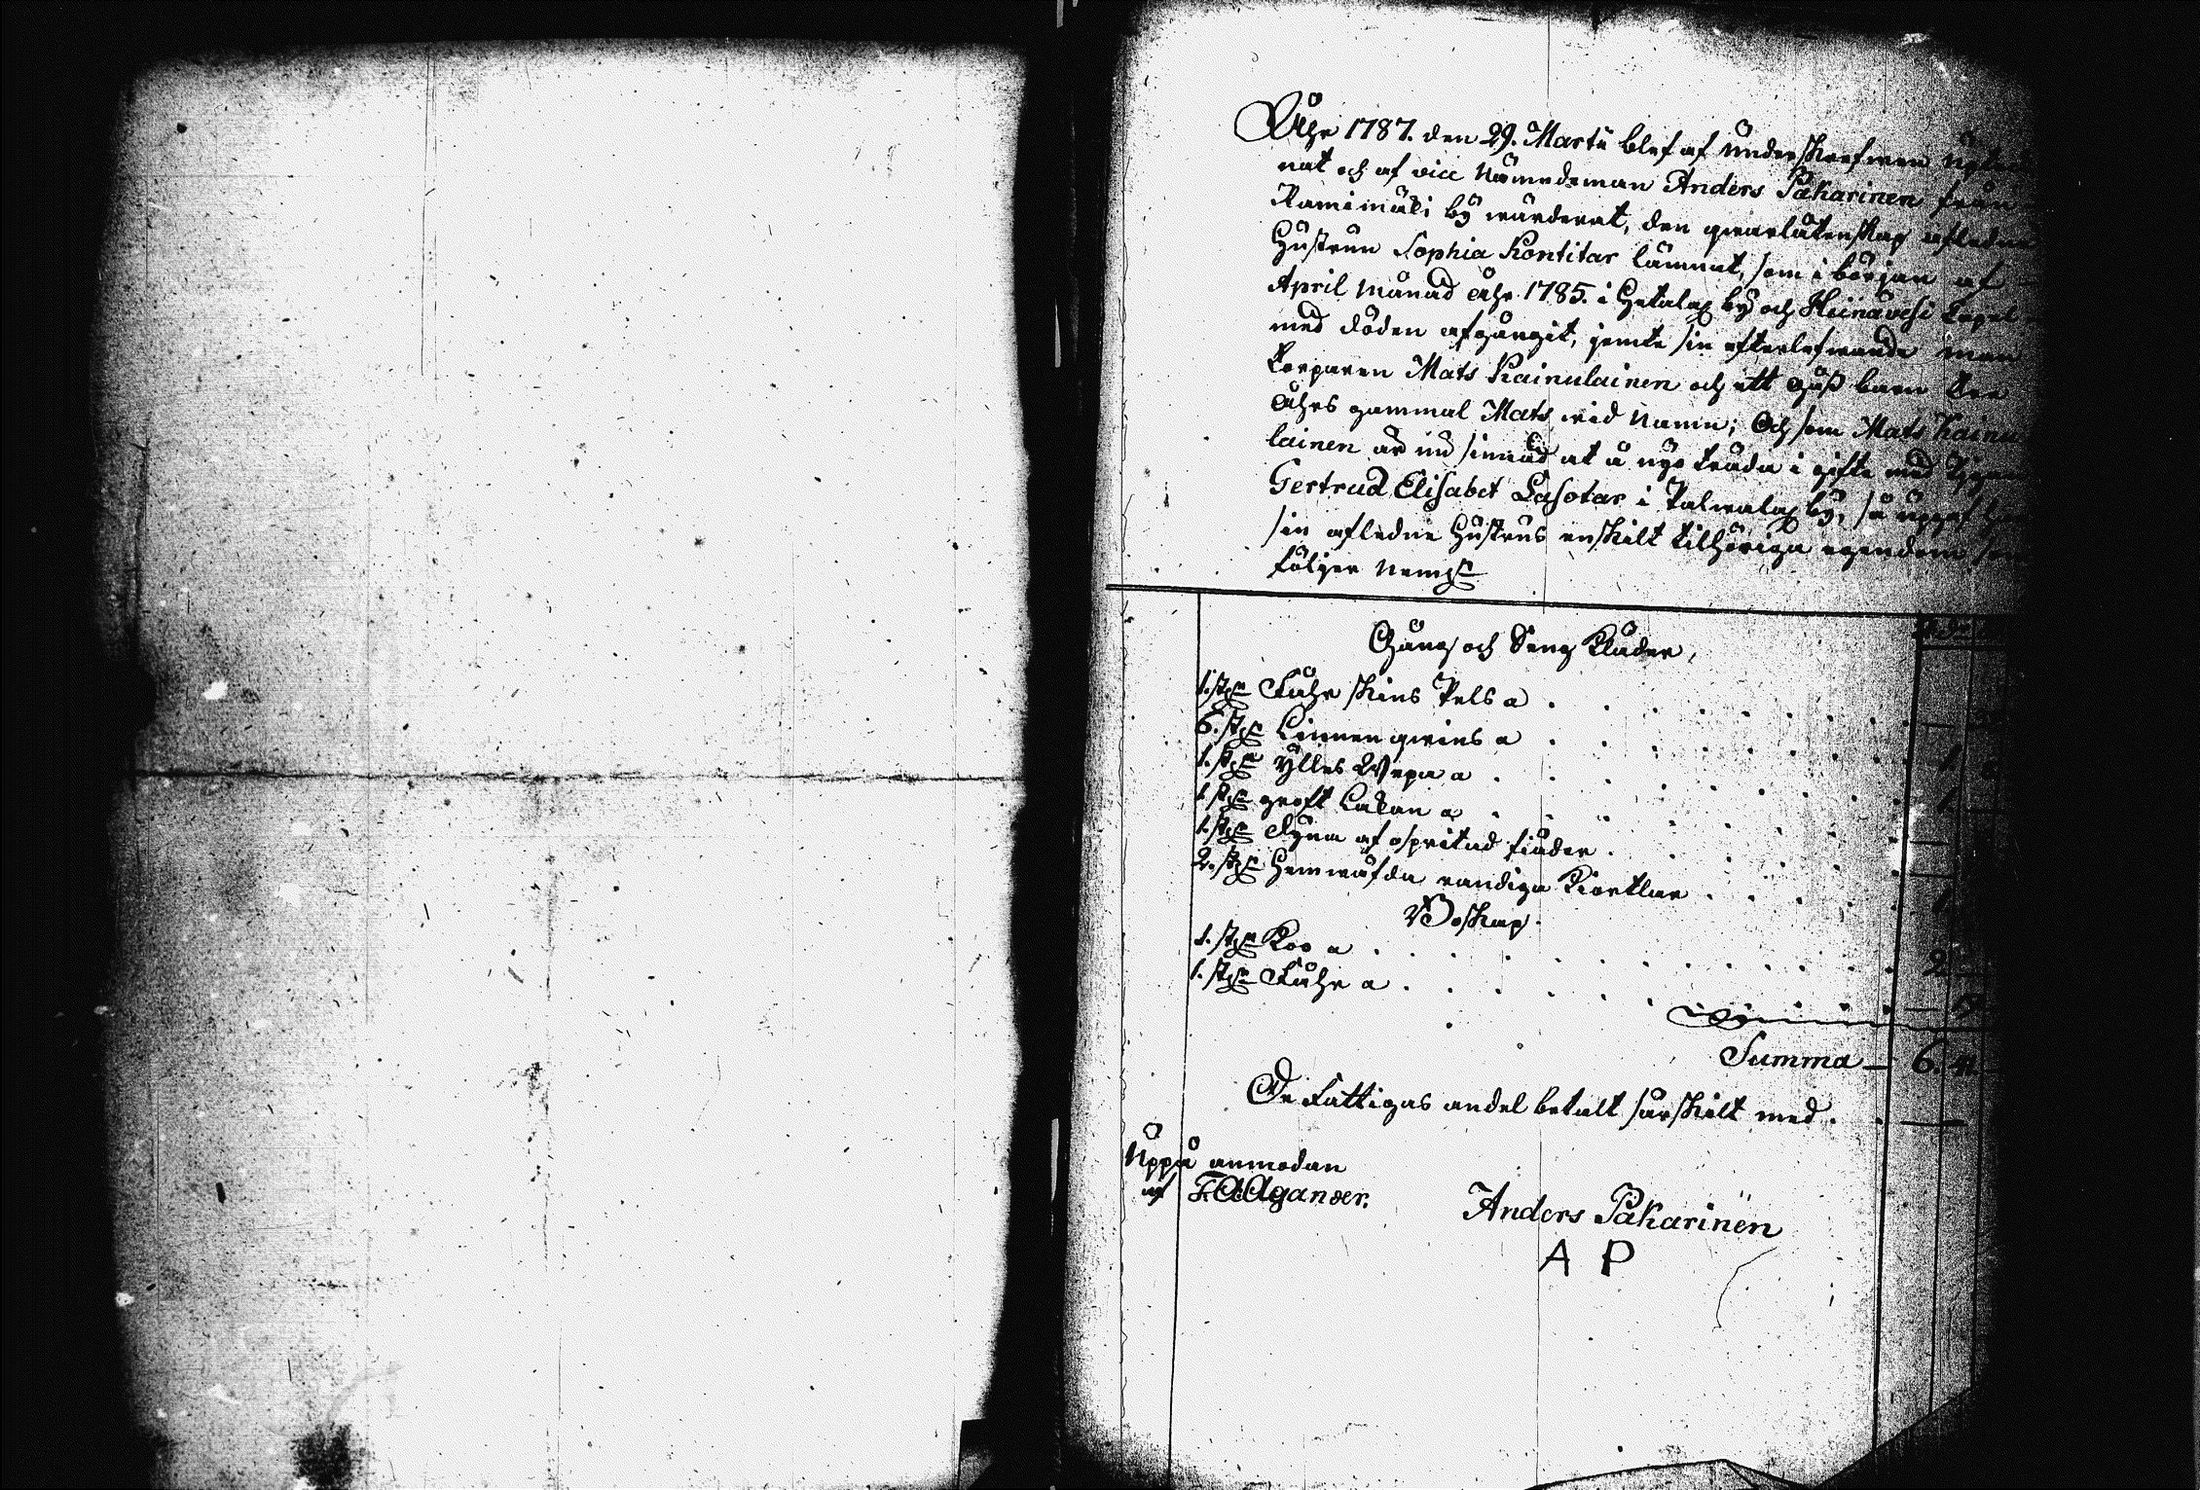 Åhr 1787. den 29. Martii blef af underskrefwen
nat och af vice Nämndeman Anders Pakarinen från
Ramimäki by wärderat, den qwarlåtenskap afledne
Hustrun Sophia Kontitar lämnat, som i början af
April Månad åhr 1785. i Hetalax by och Heinävesi Capel
med döden afgångit, jemte sin efterlefwande man
Torparen Mats Kainulainen och ett Goss barn
åhrs gammal Mats wid namn; Och som Mats Kainu
lainen är nu sinnad at å nyo träda i gifte med
Gertrud Elisabet Lasotar i Palwalax by, så uppgaf
sin aflednе Hustrus enskilt tilhöriga egendom
följer nemgn
Gång och Seng Kläder,
1. st. Fåhr skins Pels a
6. st. Linnen qwins a
1. st. ylles Wepa a
1. st. groft Lakan a
1. st. Dyna af ospritad fiäder
2. st. Hemwäfda randiga Kiortlar
Boskap.
1. st. Koo a
1. st. Fåhr a
Summa 6.
De Fattigas andel betalt särskilt med
Uppå anmodan
af F: A: Agander.
Anders Pakarinen
A P